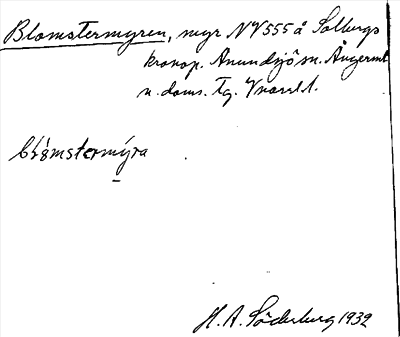 Blomstermyren, myr NV 555 å Solbergs
kronop. Anundsjö sn. Ångerml.
n. doms. Tg.
blåmstermýra
H. A. Söderberg 1932